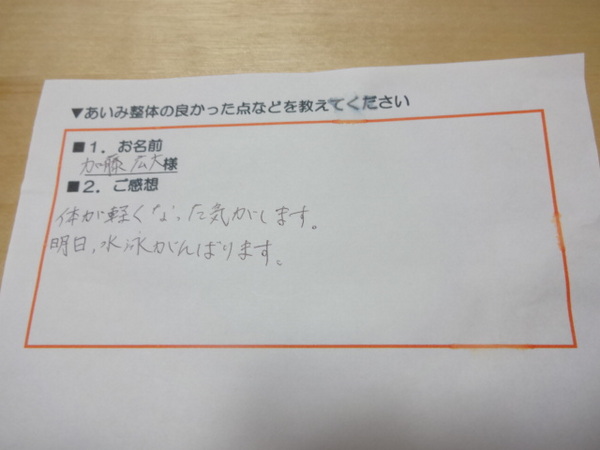 ▼あいみ整体の良かった点などを教えてください
■１．お名前
加藤 広大様
■２．ご感想
体が軽くなった気がします。
明日、水泳がんばります。